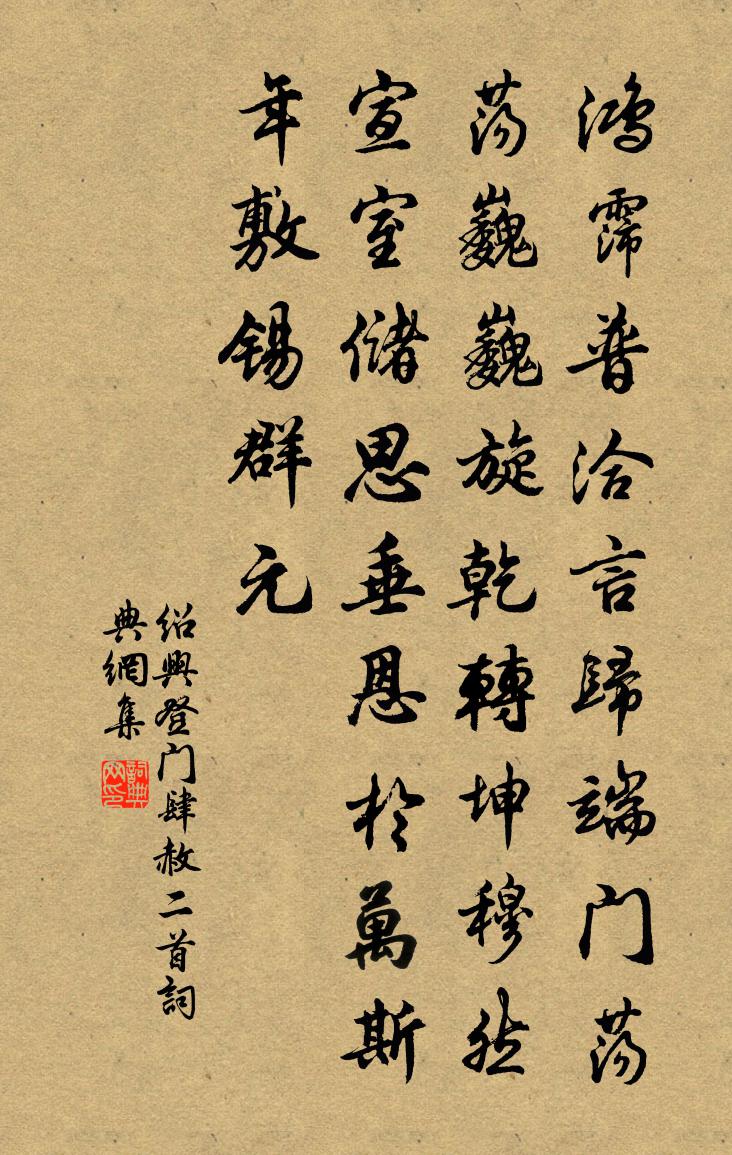 鴻霈普洽言歸端门蕩
蕩巍巍旋乾轉坤穆然
宣室儲思垂恩於萬斯
年敷錫群元
紹興登门肆赦二首詞
典網集
詞典網印